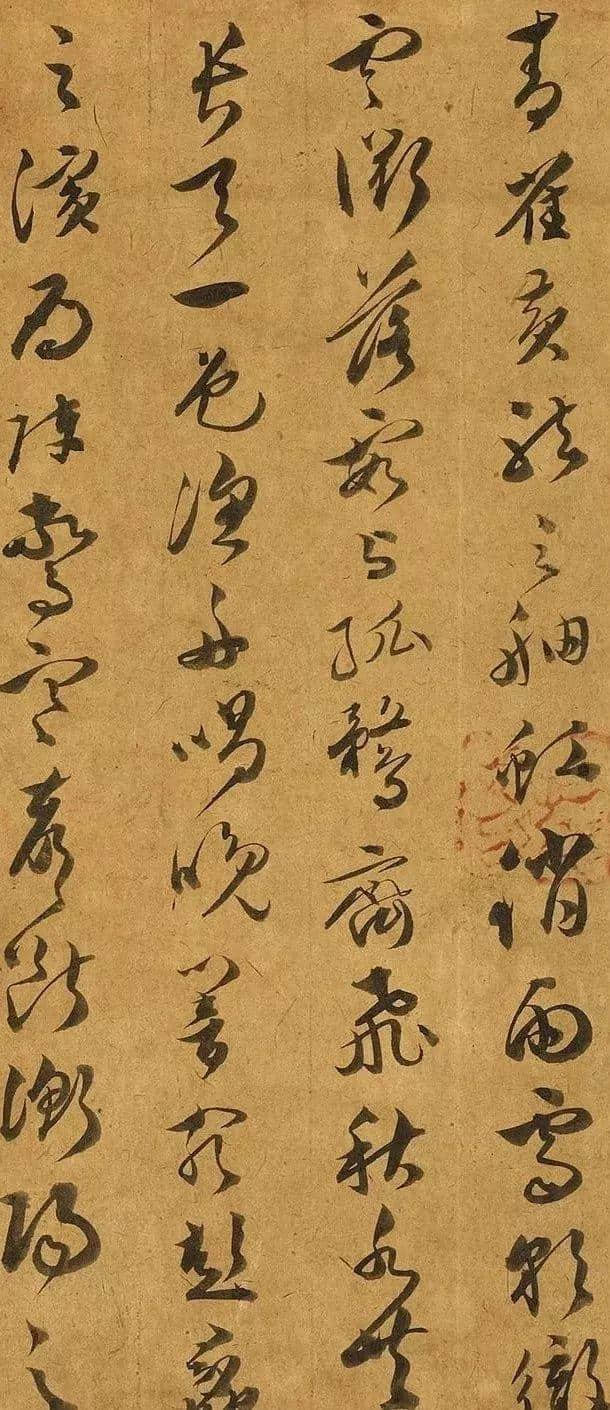 青雀黃龍之舳虹消雨霽彩徹
雲衢落霞与孤鶩齊飛秋水共
長天一色漁舟唱晚響窮彭蠡
之濱雁陣驚寒聲斷衡陽之